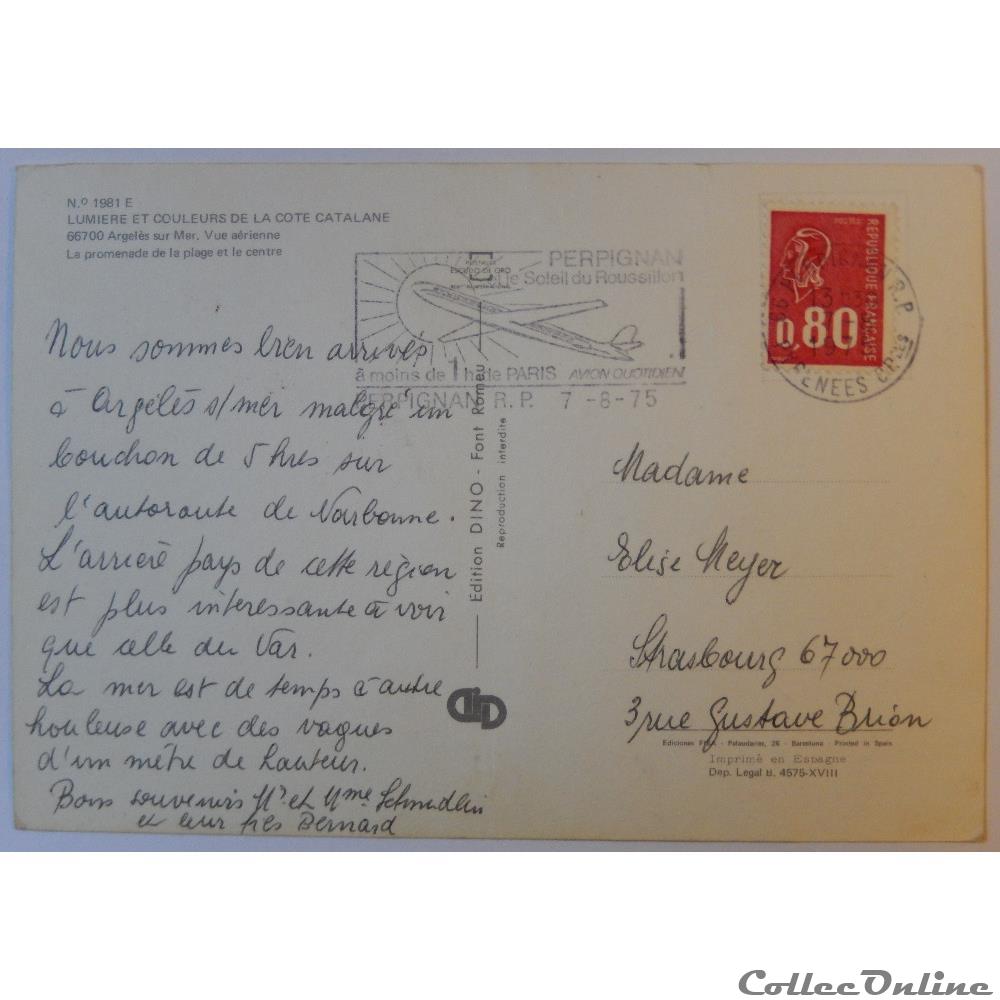 N.º 1981 E
LUMIERE ET COULEURS DE LA COTE CATALANE
66700 Argelès sur Mer. Vue aérienne
La promenade de la plage et le centre
PERPIGNAN
et le Soleil du Roussillon
à moins de 1 h de PARIS AVION QUOTIDIEN
PERPIGNAN R.P. 7 -8-75
ESCUDO DE ORO
POSTES
REPUBLIQUE FRANÇAISE
0,80
R.P.
13 H
PYRENEES OR.les
Nous sommes bien arrivés
à Argelès s/mer malgré un
bouchon de 5 hres sur
l'autoroute de Narbonne.
L'arrière pays de cette région
est plus interessante à voir
que celle du Var.
La mer est de temps à autre
houleuse avec des vagues
d'un mètre de hauteur.
Bons souvenirs Mr et Mme Schmidlin
et leur fils Bernard
Edition DINO - Font Romeu
Reproduction interdite
Madame
Elise Meyer
Strasbourg 67000
3 rue Gustave Brion
Ediciones FISA - Palaudarias, 26 - Barcelona - Printed in Spain
Imprimé en Espagne
Dep. Legal B. 4575-XVIII
CollecOnline